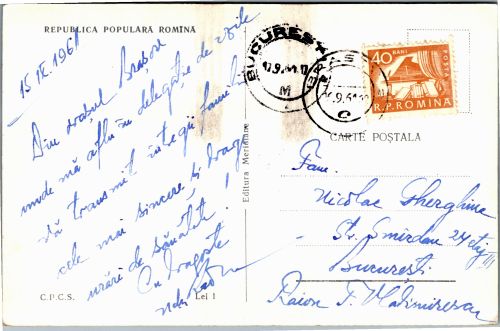 REPUBLICA POPULARĂ ROMÎNĂ
15.IX.1961
Din orașul Brașov
unde mă aflu în delegație de zile
vă transmit întregii familii
cele mai sincere și drage
urări de sănătate!
Cu dragoste
C.P.C.S.
Lei 1
Editura Meridiane
BUCUREȘTI
17.9.61
M
40 BANI
POȘTA
R.P.ROMINA
CARTE POȘTALĂ
Fam.
Nicolae Gherghina
Str. Smîrdan 24 etaj III
București
Raion T. Vladimirescu